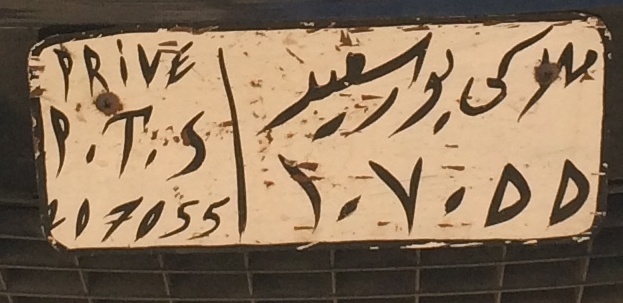 PRIVE
P.T.S
207055
ملاكى بور سعيد
٢٠٧٠٥٥